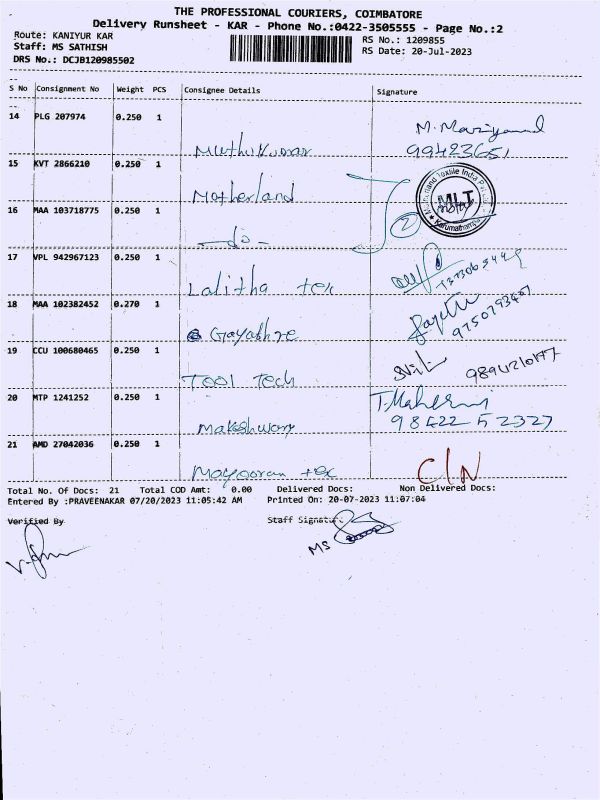 THE PROFESSIONAL COURIERS, COIMBATORE
Delivery Runsheet - KAR - Phone No.:0422-3505555 - Page No.:2
Route: KANIYUR KAR
RS No.: 1209855
Staff: MS SATHISH
RS Date: 20-Jul-2023
DRS No.: DCJB120985502
S No Consignment No Weight PCS Consignee Details Signature
14 PLG 207974 0.250 1
Muthukumar
15 KVT 2866210 0.250 1
Motherland
16 MAA 103718775 0.250 1
-do-
2
MLT
17 VPL 942967123 0.250 1
Lalitha tex
18 MAA 102382452 0.270 1
Gayathre
19 CCU 100680465 0.250 1
Tool Tech
20 MTP 1241252 0.250 1
98422 52327
21 AMD 27042036 0.250 1
Mayooran tex
C/N
Total No. Of Docs: 21 Total COD Amt: 0.00 Delivered Docs: Non Delivered Docs:
Entered By :PRAVEENAKAR 07/20/2023 11:05:42 AM Printed On: 20-07-2023 11:07:04
Verified By
Staff Signature
MS